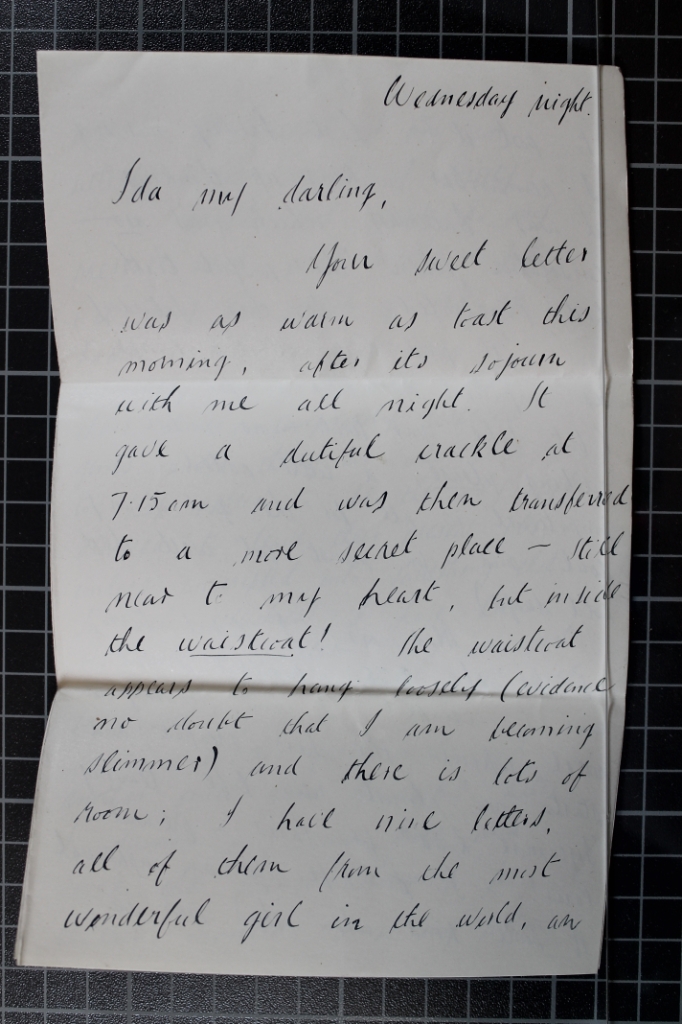 Wednesday night.
Ida my darling,
Your sweet letter
was as warm as toast this
morning, after its sojourn
with me all night. It
gave a dutiful crackle at
7.15 am and was then transferred
to a more secret place – still
near to my heart, but inside
the waistcoat! The waistcoat
appears to hang loosely (evidence
no doubt that I am becoming
slimmer) and there is lots of
room; I have nine letters,
all of them from the most
wonderful girl in the world, an